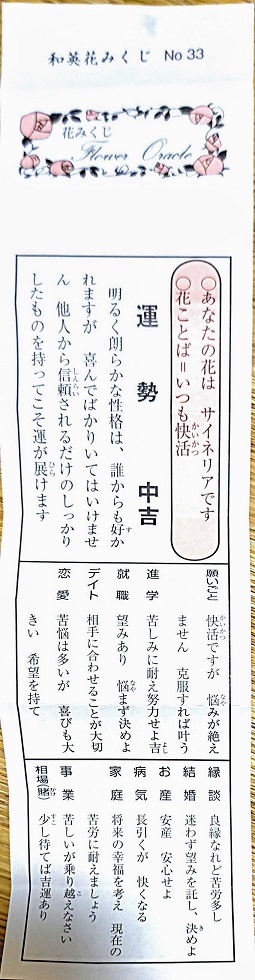 和英花みくじ No 33
花みくじ
Flower Oracle
○あなたの花は サイネリアです
○花ことば＝いつも快活
運勢 中吉
明るく朗らかな性格は、誰からも好か
れますが 喜んでばかりいてはいけませ
ん 他人から信頼されるだけのしっかり
したものを持ってこそ運が展けます
願いごと 快活ですが 悩みが絶え
ません 克服すれば叶う
進学 苦しみに耐え努力せよ吉
就職 望みあり 悩まず決めよ
デイト 相手に合わせることが大切
恋愛 苦悩は多いが 喜びも大
きい 希望を持て
縁談 良縁なれど苦労多し
結婚 迷わず望みを託し、決めよ
お産 安産 安心せよ
病気 長引くが 快くなる
家庭 将来の幸福を考え 現在の
苦労に耐えましょう
事業 苦しいが乗り越えなさい
相場(賭) 少し待てば吉運あり